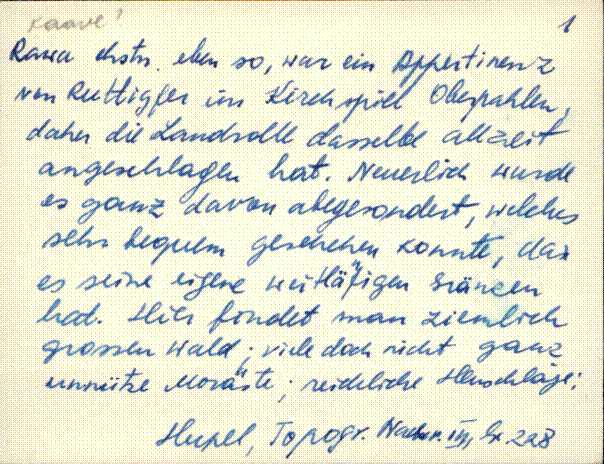 Kaave!
1
Rawa ehstn. eben so, war ein Appertinenz
von Ruttigfer im Kirchspiel Oberpahlen,
daher die Landrolle dasselbe allzeit
angeschlagen hat. Neuerlich wurde
es ganz davon abgesondert, welches
sehr bequem geschehen konnte, da
es seine eigene weitläfigen Gränzen
hat. Hier findet man ziemlich
grossen Wald; viele doch nicht ganz
unnütze Moräste; reichliche Heuschläge;
Hupel, Topogr. Nachr. III, 228